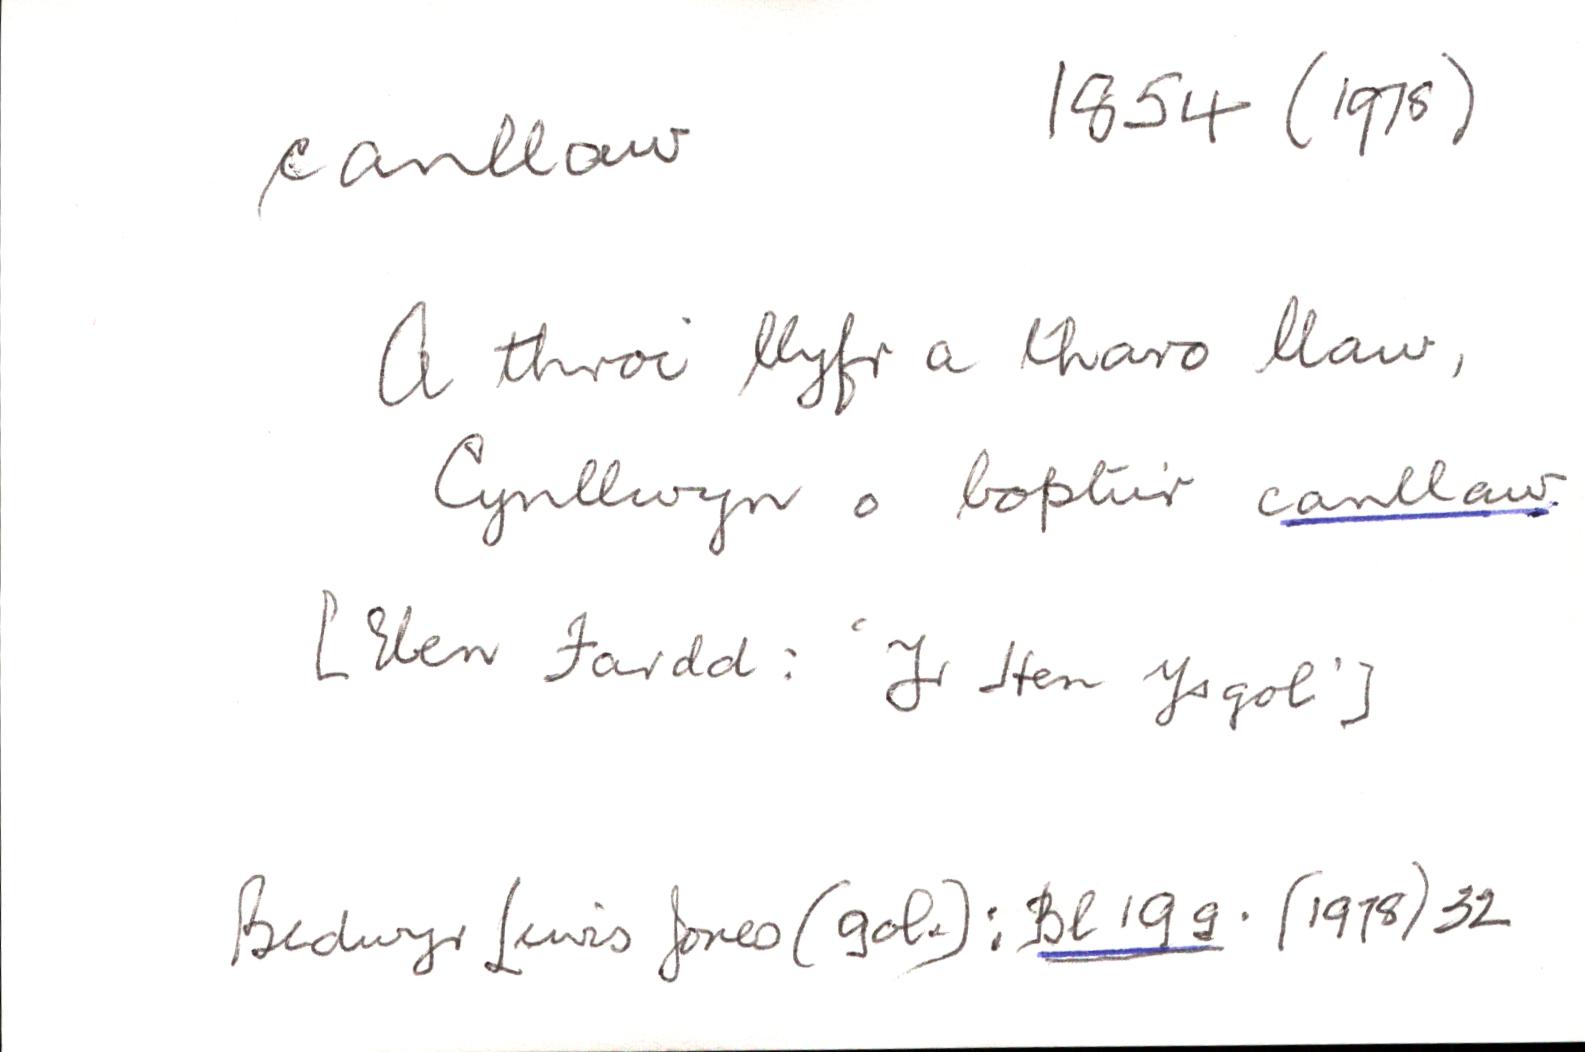 canllaw
1854 (1978)
A throi llyfr a tharo llaw,
Cynllwyn o boptu'r canllaw.
[Eben Fardd: 'Yr Hen Ysgol']
Bedwyr Lewis Jones (gol.): Bl 19g. (1978) 32